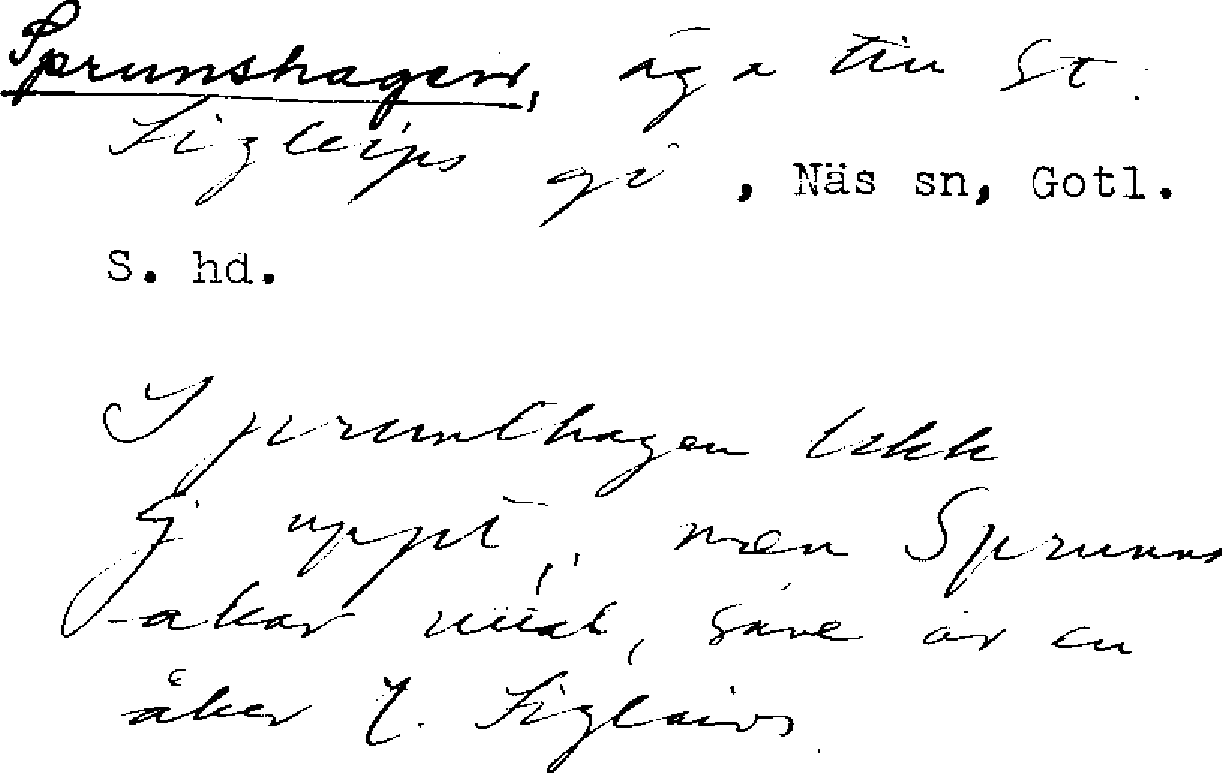 Sprunshagen, äga till St.
Sigleips gd, Näs sn, Gotl.
S. hd.
Sprunshagen
ej uppt, men Sprunns
-akar är en
åker t. Siglaivs.